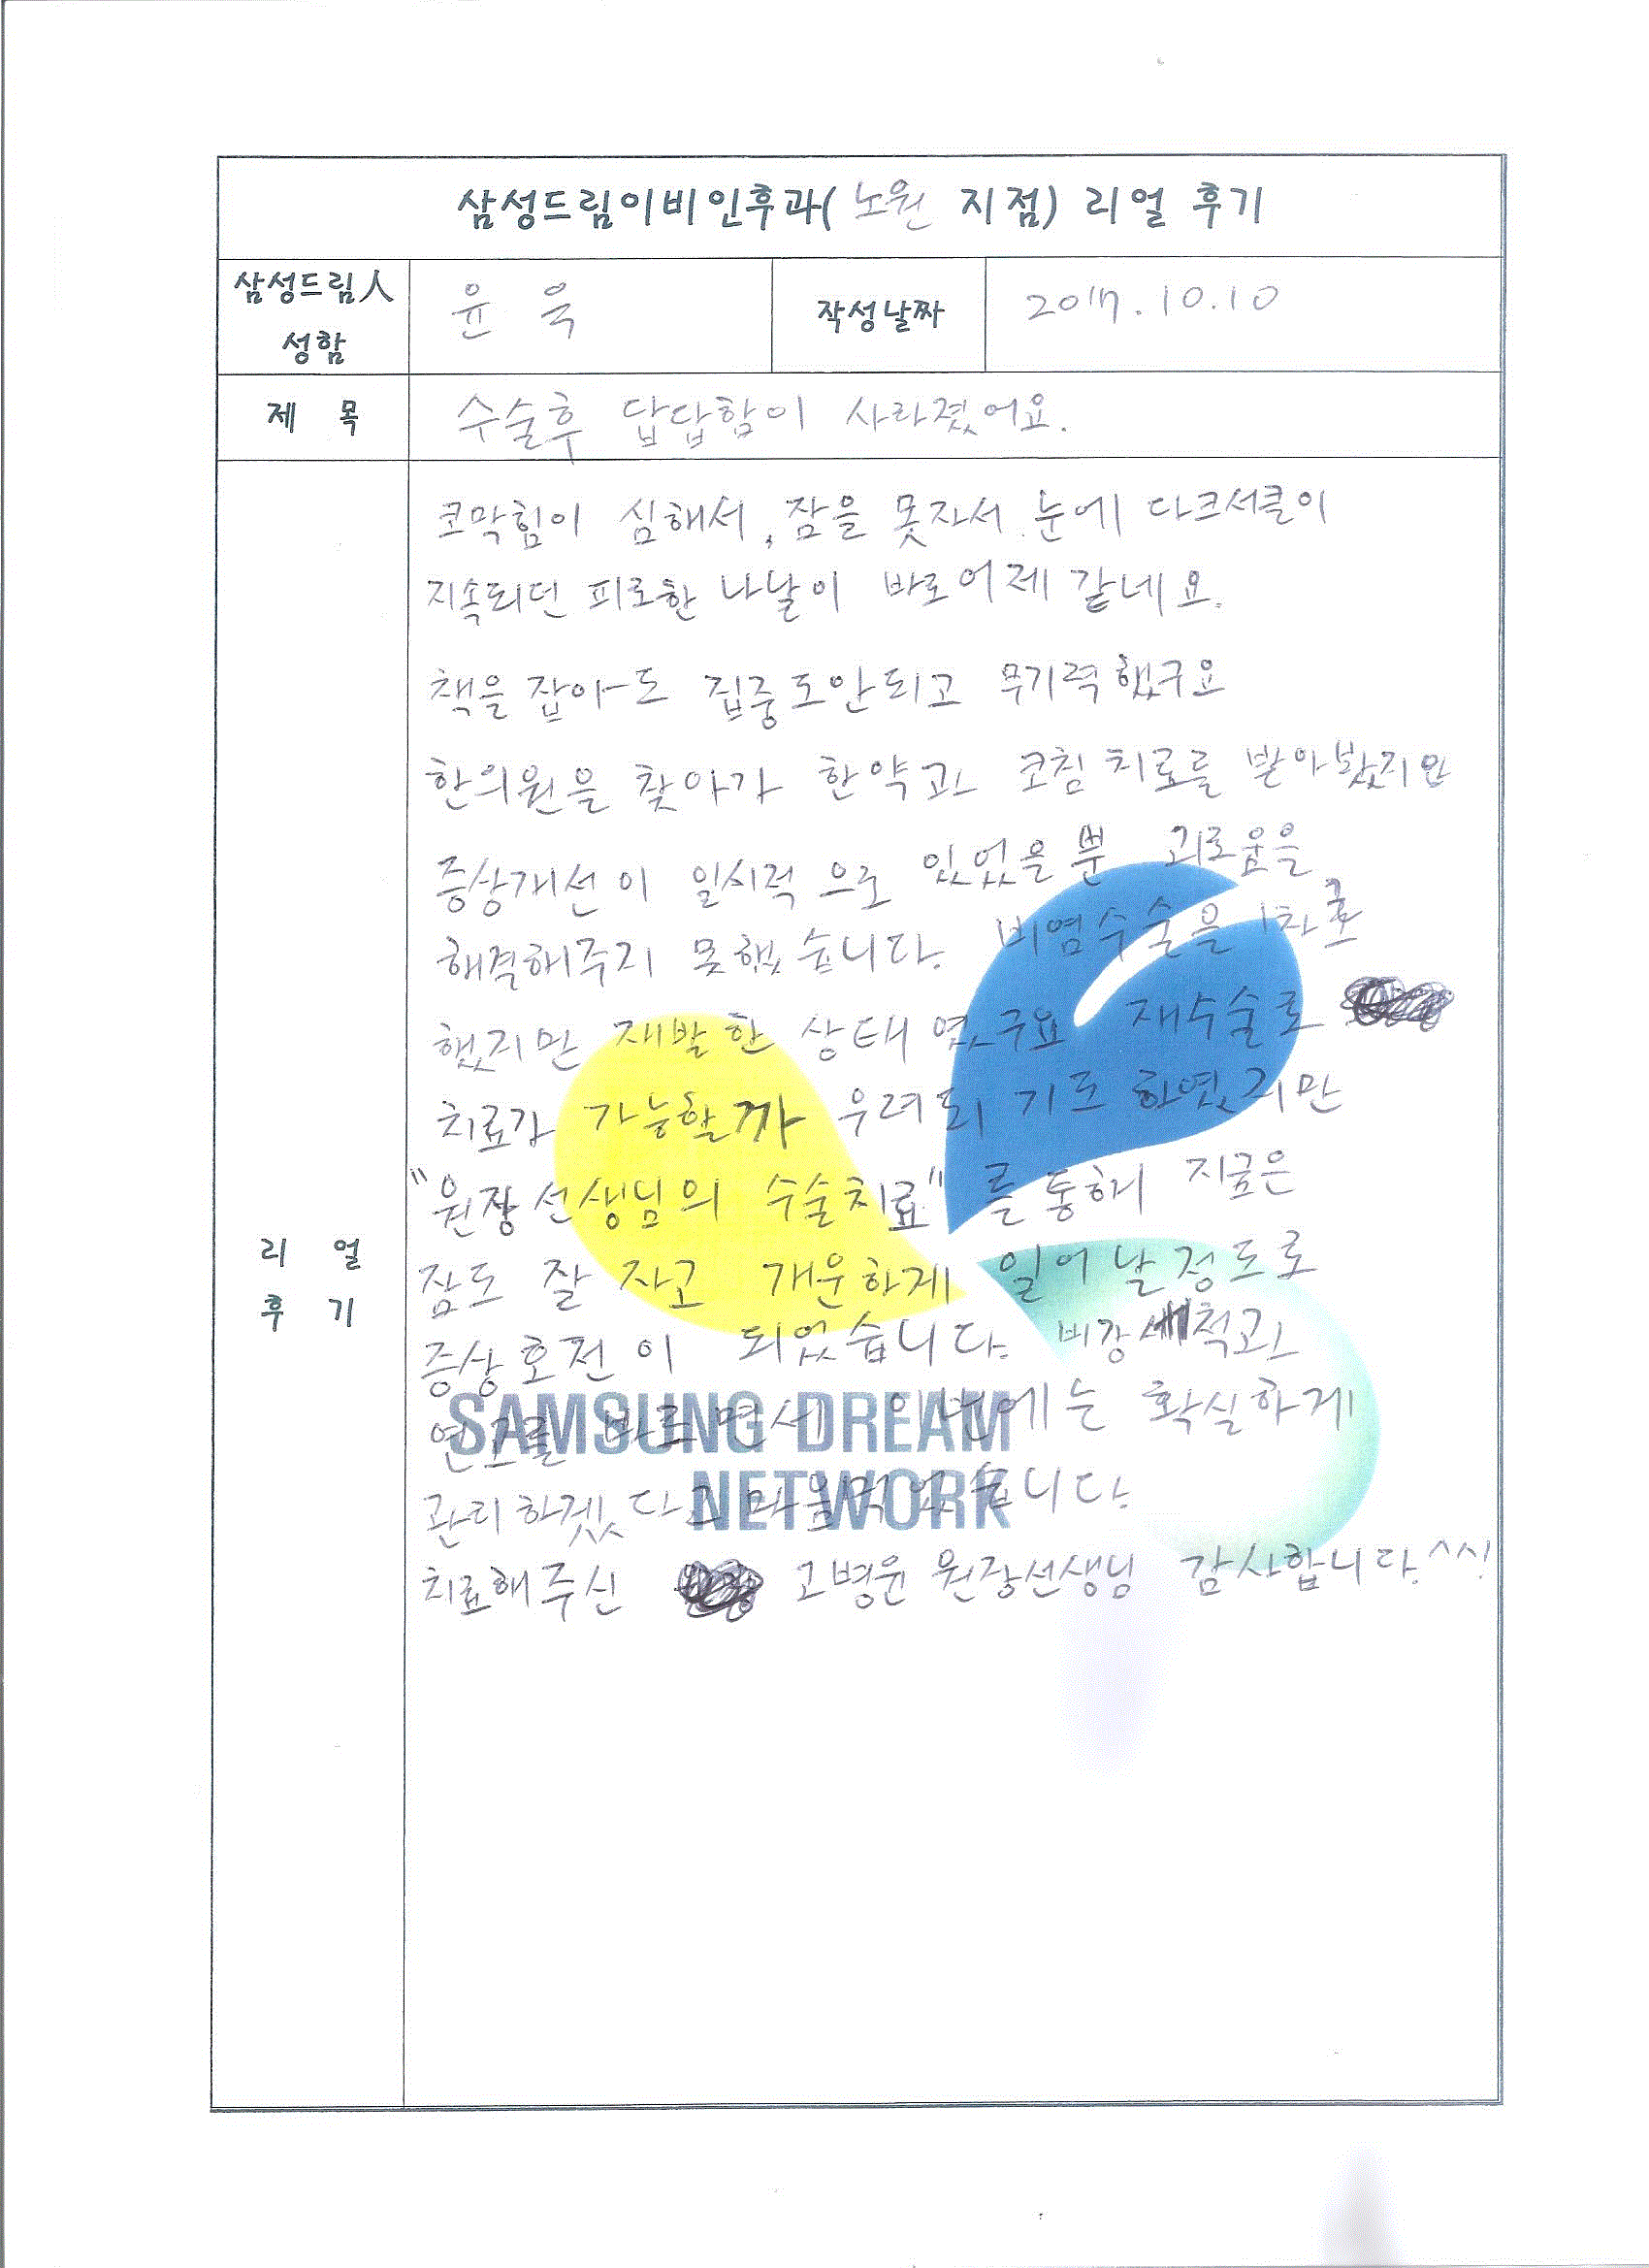 삼성드림이비인후과( 노원 지점) 리얼 후기
삼성드림人
성함
윤 욱
작성날짜
2017.10.10
제 목
수술후 답답함이 사라졌어요.
리 얼
후 기
코막힘이 심해서, 잠을 못자서 눈에 다크서클이
지속되던 피로한 나날이 바로어제 같네요.
책을 잡아도 집중도안되고 무기력했구요
한의원을 찾아가 한약과 코침치료를 받아봤지만
증상개선이 일시적 으로 있었을 뿐 괴로움을
해결해주지 못했습니다. 비염수술을 1차로
했지만 재발한 상태 였구요 재수술로
치료가 가능할까 우려회 기도 하였지만
"원장선생님의 수술치료"를 통해 지금은
잠도 잘 자고 개운하게 일어날정도로
증상호전이 되었습니다. 비강세척과
연고를 바르면서 이번에는 확실하게
관리하겠다고 마음먹었습니다.
치료해주신 고병윤 원장선생님 감사합니다.^^!
SAMSUNG DREAM
NETWORK